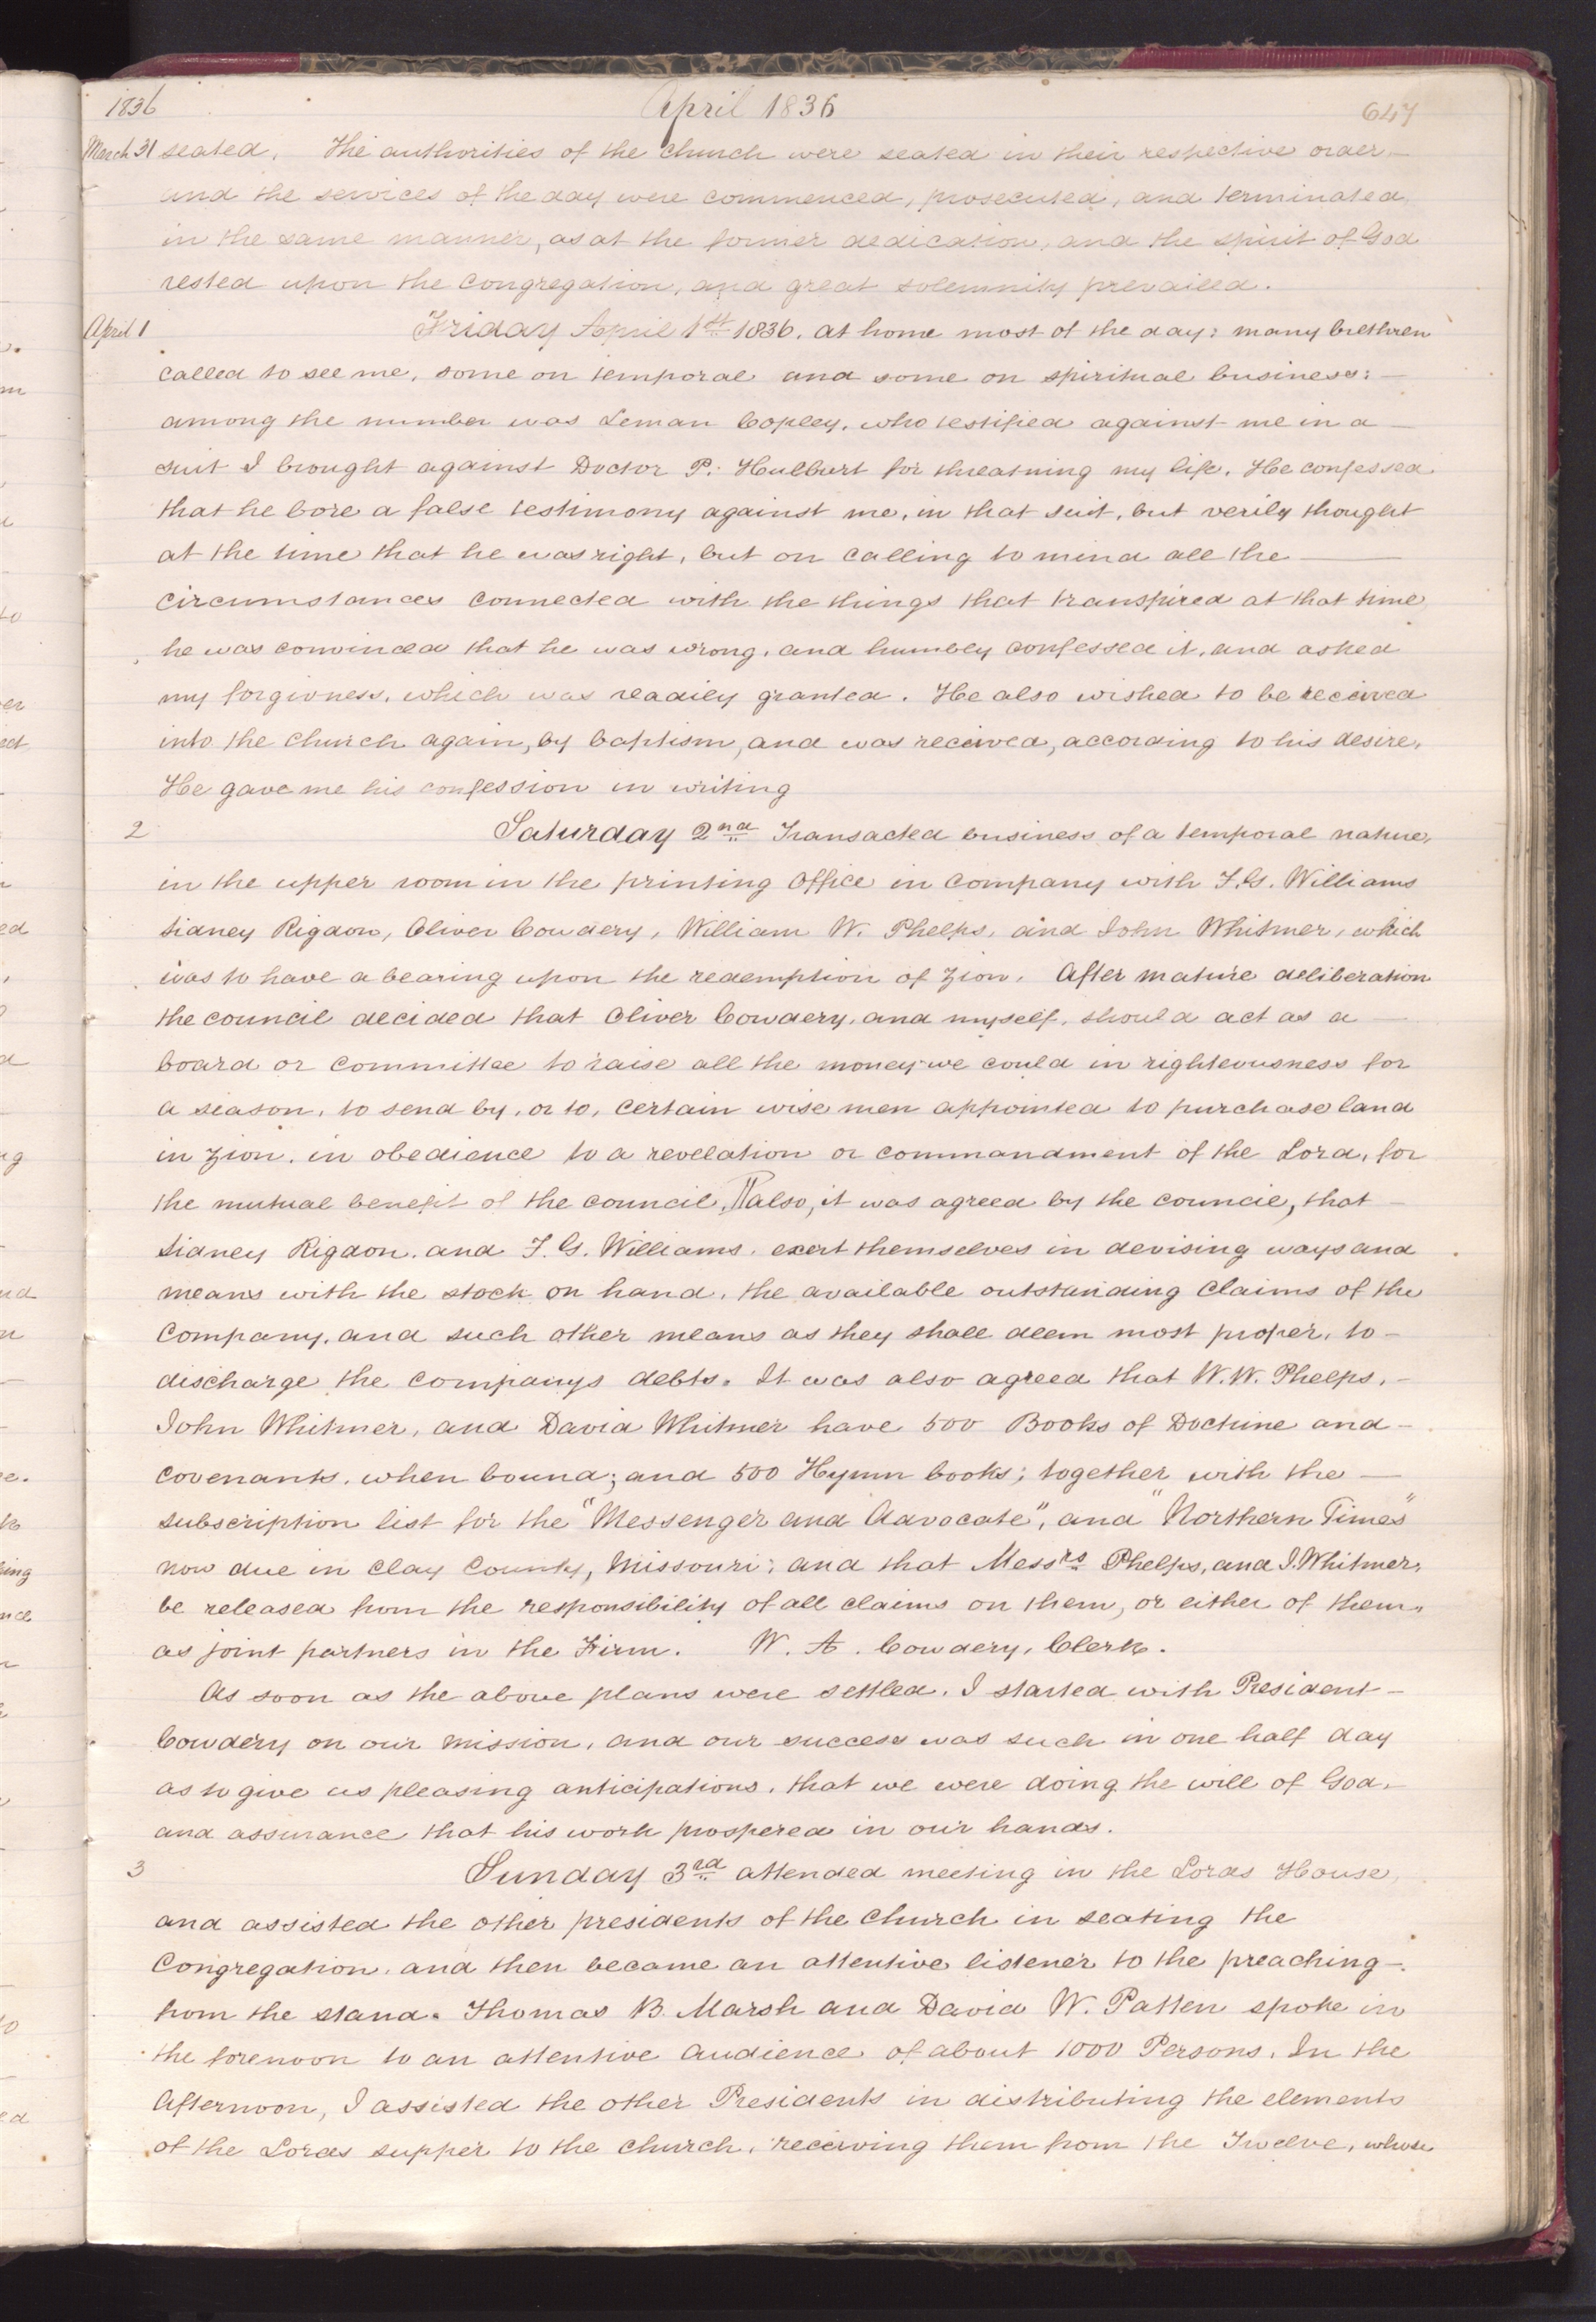 1836 April 1836 647
March 31 seated, The authorities of the church were seated in their respective order—
and the services of the day were commenced, prosecuted, and terminated,
in the same manner, as at the former dedication, and the spirit of God
rested upon the congregation, and great solemnity prevailed.
April 1 Friday April 1st 1836. at home most of the day; many brethren
called to see me, some on temporal and some on spiritual business;—
among the number was Leman Copley, who testified against me in a—
suit I brought against Doctor P. Hulburt for threatning my life. He confessed
that he bore a false testimony against me, in that suit, but verily thought
at the time that he was right, but on calling to mind all the —
circumstances connected with the things that transpired at that time,
he was convinced that he was wrong, and humbly confessed it, and asked
my forgivness, which was readily granted. He also wished to be received
into the church again, by baptism, and was received, according to his desire.
He gave me his confession in writing
2 Saturday 2nd Transacted business of a temporal nature,
in the upper room in the printing Office in company with F. G. Williams
Sidney Rigdon, Oliver Cowdery, William W. Phelps, and John Whitmer, which
was to have a bearing upon the redemption of Zion. After mature deliberation
the council decided that Oliver Cowdery, and myself, should act as a —
board or committee to raise all the money we could in righteousness for
a season, to send by, or to, certain wise men appointed to purchase land
in Zion. in obedience to a revelation or commandment of the Lord, for
the mutual benefit of the council, ¶ also, it was agreed by the council, that—
Sidney Rigdon, and F. G. Williams, exert themselves in devising ways and
means with the stock on hand, the available outstanding claims of the
company, and such other means as they shall deem most proper, to—
discharge the companys debts. It was also agreed that W. W. Phelps,—
John Whitmer, and David Whitmer have 500 Books of Doctrine and—
covenants, when bound; and 500 Hymn books; together with the —
subscription list for the "Messenger and Advocate", and "Northern Times"
now due in Clay County, Missouri; and that Messrs Phelps, and J. Whitmer,
be released from the responsibility of all claims on them, or either of them,
as joint partners in the Firm. W. A. Cowdery, Clerk.
As soon as the above plans were settled, I started with President—
Cowdery on our mission, and our success was such in one half day
as to give us pleasing anticipations, that we were doing the will of God,—
and assurance that his work prospered in our hands.
3 Sunday 3rd attended meeting in the Lords House,
and assisted the other presidents of the Church in seating the
congregation, and then became an attentive listener to the preaching—
from the stand. Thomas B. Marsh and David W. Patten spoke in
the forenoon to an attentive audience of about 1000 Persons. In the
Afternoon, I assisted the other Presidents in distributing the elements
of the Lords supper to the church, receiving them from the Twelve, whose